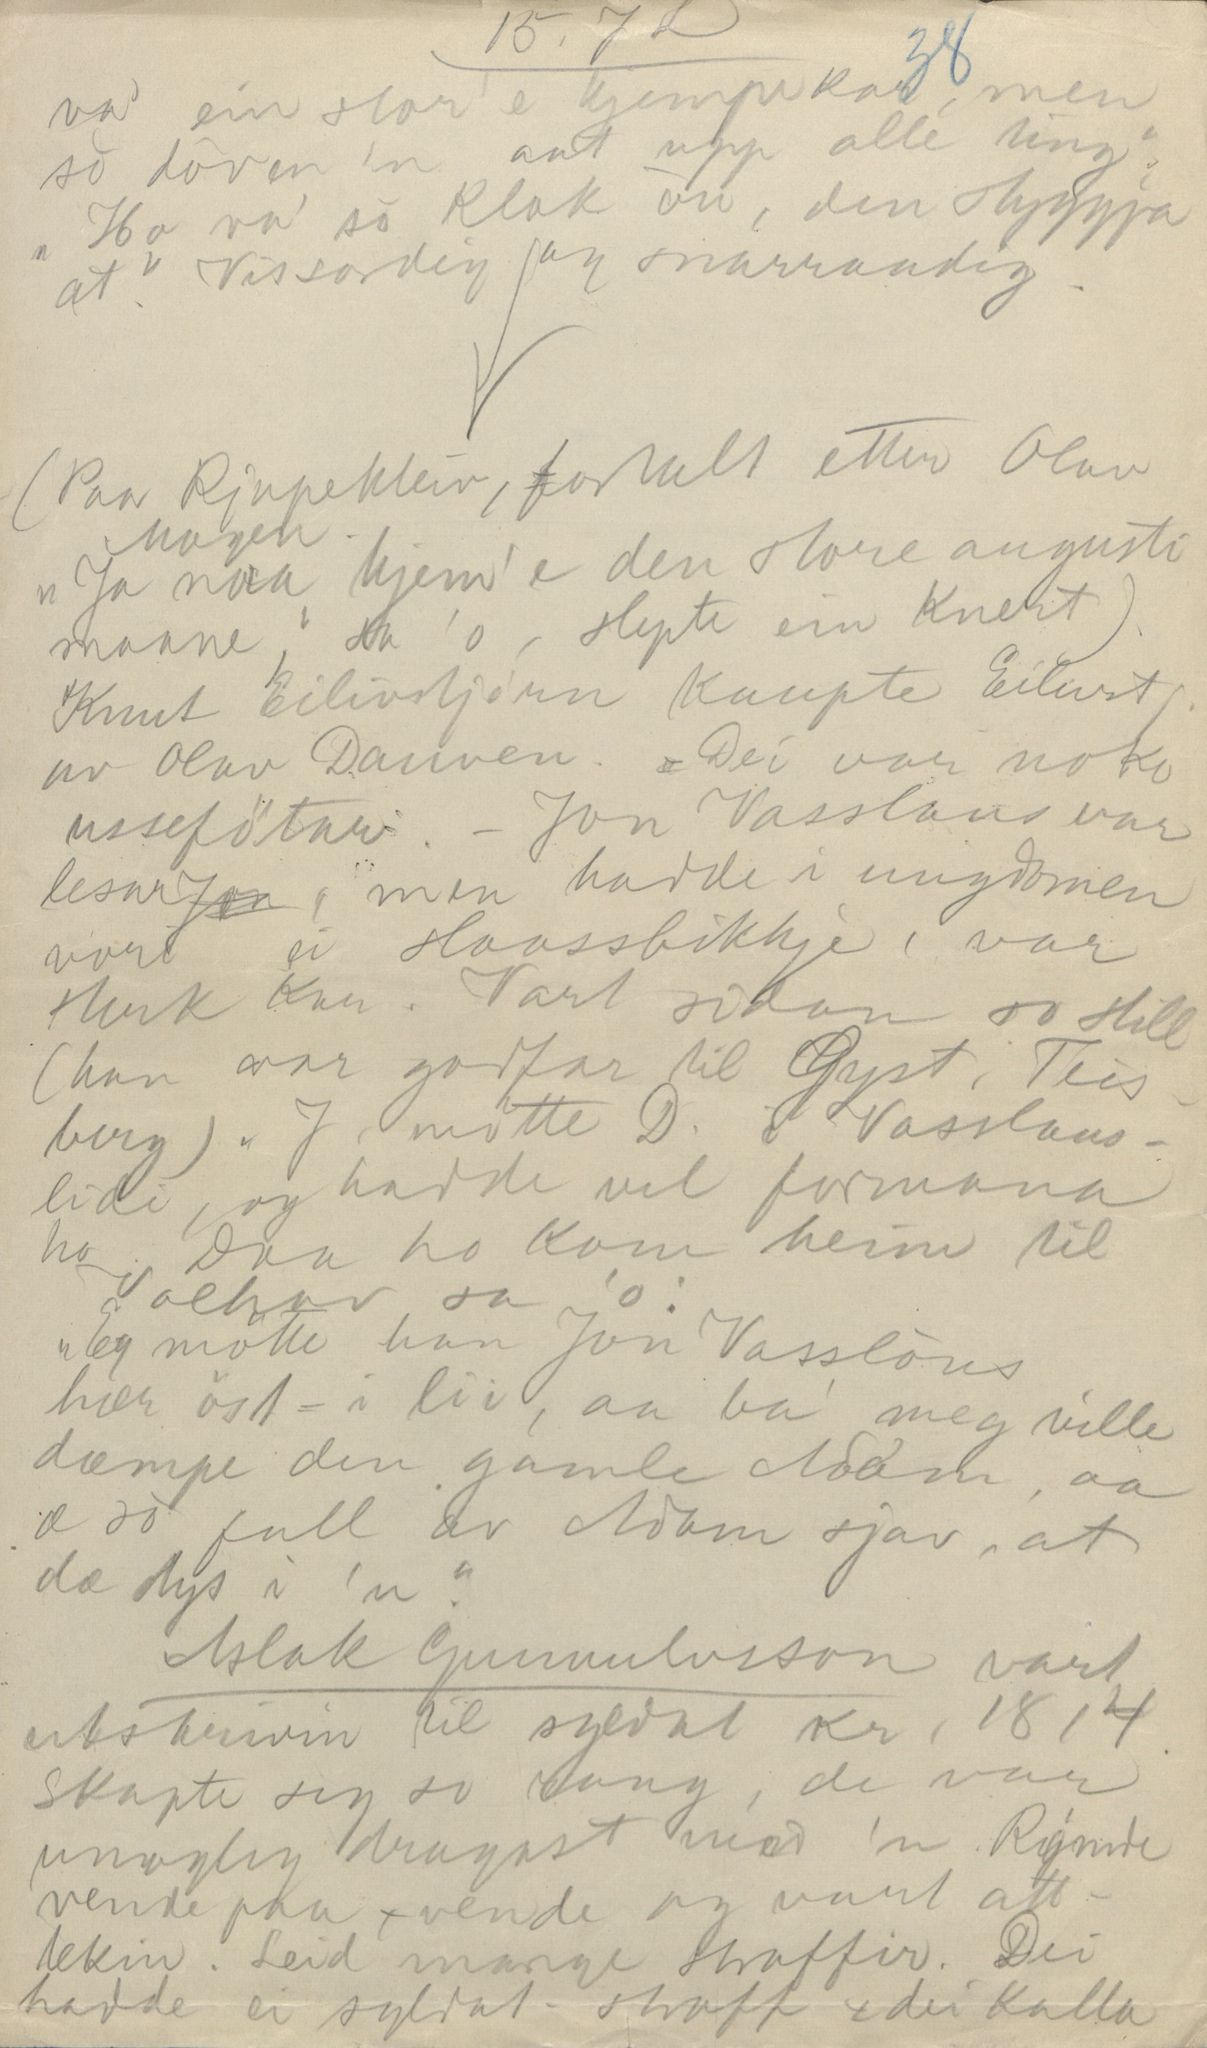 15. 72
38
va' ein stor'e kjempekar, men
so döven'n aat upp alle ting".
"Ho va' so klok òu, den styggja
at". Vissordig og snarraadig.
(Paa Rjupekleiv, fortalt etter Olav
Hagen.
"Ja naa kjem'e den store augusti
maane," sa 'o, slepte ein knert).
Knut Eilivstjönn kaupte Eilivstj.
av Olav Dauven. Dei var noko
ussefötar. - Jon Vasslaus var
lesar, men hadde i ungdomen
vori ei slaassbikkje, var
sterk kar. Vart sidan so still
(han var godfar til Gyst. Teis-
berg). J. mötte D. i Vasslaus-
lidi, og hadde vel formana
ho. Daa ho kom heim til
sa 'o:
"Eg mötte han Jon Vasslöus
her öst-i lii, aa ba' meg ville
dæmpe den gamle Adam, aa
æ so full av Adam sjav, at
dæ tys i 'n".
Aslak Gunnulvsson vart
utskrivin til syldat kr. 1814.
Skapte seg so rang, de var
umogleg dragast med 'n. Rýmde
vende paa vende og vart att-
tekin. Leid mange straffir. Dei
hadde ei syldat-straff dei kalla